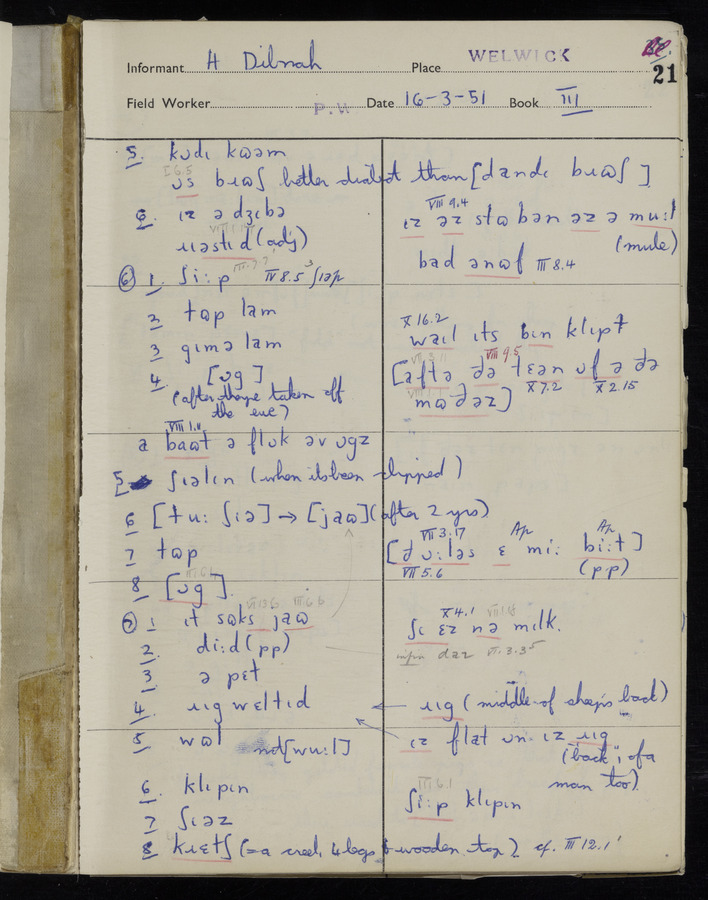 Be.
Informant H Dibnah Place WELWICK 21
Field Worker P.W Date 16-3-51 Book III
5. kʊdɪ kwəm
I 6.5
ʊs bɹɷʃ better dialect than [dandɪ bɹɷʃ]
6. ɪz ə dʒɪbə
VIII 9.4
ɪz əz stɷbən əz ə mu:l
ɹɪəstɪd (adj) (mule)
bad ənɷf III 8.4
⑥ 1. ʃi:p IV 8.5 ʃɪəp
2 tɷp lam
X 16.2
wail ɪts bɪn klɪpt
3 gɪmə lam
VIII 9.5
4. [ʊg] [aftə ðə tɛən ʊf ə ðə
X 7.2 X 2.15
(after they're taken off mɷðəz]
the ewe)
VIII 1.11
a baɷt ə flɒk əv ʊgz
5 ʃɪəlɪn (when it's been clipped)
6 [tu: ʃɪə] → [jaɷ] (after 2 yrs)
VII 3.17 Ap Ap
7 tɷp [dʊ:ləs ɛ mi: bi:t]
VII 5.6 (pp)
8 [ʊg]
VI 13.6 III 6.6
X 4.1
⑦ 1 ɪt sɷks jaɷ ʃɪ ɛz nə mɪlk.
2. di:d (pp) daz VI.3.3
3 ə pɛt
4. ɹɪg wɛltɪd ← ɹɪg (middle of sheep's back)
5 wɷl not [wu:l] ɪz flat ʊn ɪz ɹɪg
(back", of a
man too)
6. klɪpɪn
III 6.1
ʃi:p klɪpɪn
7 ʃɪəz
8 kɹɛtʃ (= a creel, 4 legs & wooden top). cf. III 12.1